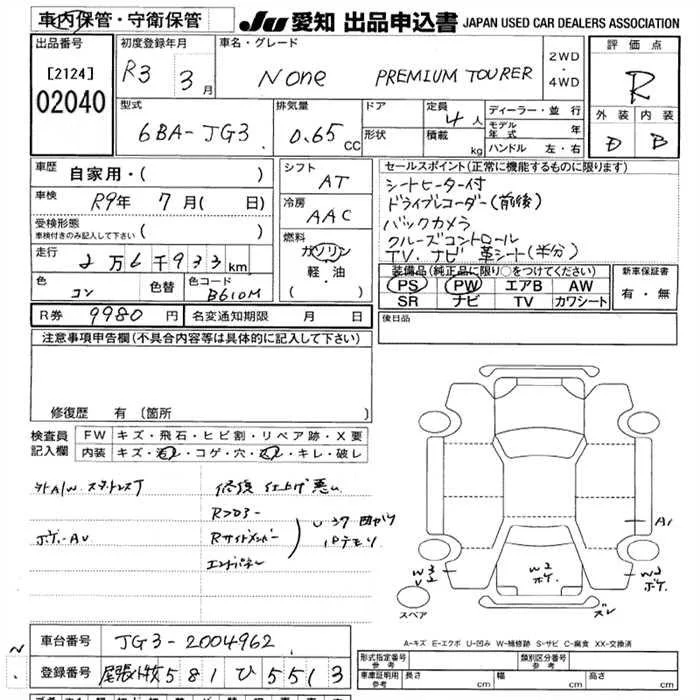 車内保管・守衛保管
JU 愛知 出品申込書 JAPAN USED CAR DEALERS ASSOCIATION
出品番号
[2124]
02040
初度登録年月
R3 3月
車名・グレード
None PREMIUM TOURER
2WD
・
4WD
評価点
R
外装 内装
D B
型式
6BA-JG3
排気量
0.65 CC
ドア
形状
定員 4人
積載 kg
ディーラー・並行
モデル年式 年
ハンドル 左・右
車歴 自家用・( )
車検 R9年 7月( 日)
受検形態
車検付きのみ記入して下さい
走行 2万6千933km
色 コン 色替 色コード B610M
R券 9980円 名変通知期限 月 日
シフト
AT
冷房
AAC
燃料
ガソリン
軽・油
・( )
セールスポイント(正常に機能するものに限ります)
シートヒーター付
ドライブレコーダー(前後)
バックカメラ
クルーズコントロール
TV.ナビ 革シート(半分)
装備品(純正品に限り○をつけてください)
PS PW エアB AW
SR ナビ TV カワシート
新車保証書
有・無
後日品
注意事項申告欄(不具合内容等は具体的に記入して下さい)
修復歴 有(箇所
検査員記入欄
FW キズ・飛石・ヒビ割・リペア跡・X要
内装 キズ・汚レ・コゲ・穴・スレ・キレ・破レ
外A/W スタットレスT
修復 仕上ゲ悪い
Rフロアー
Rサイドメンバー
エンドパネル
A1
W2
ボケ
W3
ボケ
W3
V
ズレ
スペア
A-キズ E-エクボ U-凹み W-補修跡 S-サビ C-腐食 XX-交換済
車台番号 JG3-2004962
登録番号 尾張小牧 581 ひ 5513
形式指定番号
参考
類別区分番号
参考
車庫証明用
参考
長さ cm 幅 cm 高さ cm